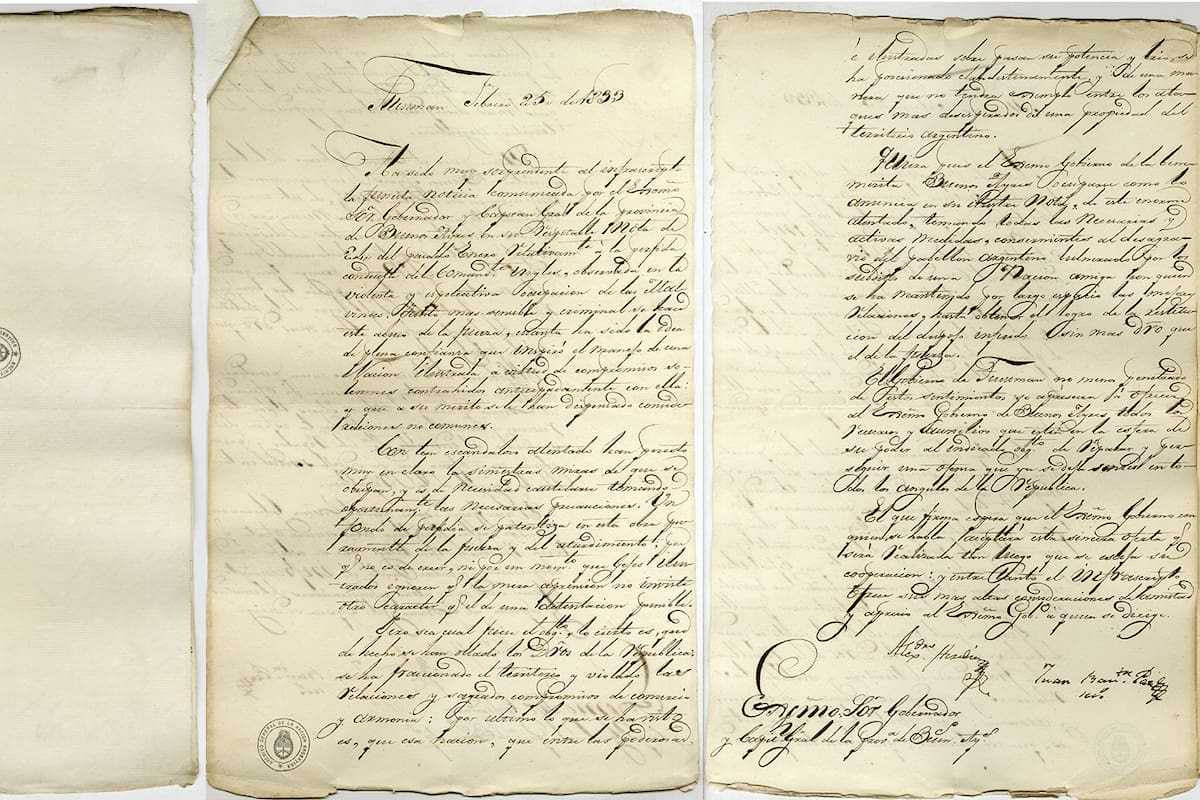 Tucuman Febrero 25 de 1833
Ha sido muy sorprendente al infrascripto
la funesta noticia comunicada por el Exẽmo
Sõr. Gobernador y Capitan Gral de la provincia
de Buenos Ayres en su respetable Nota de
del pasado Enero relativam.te à la perfida
conducta del Comand.te Ingles, observada en la
violenta y espoliativa ocupacion de las Mal-
vinas. Tanto mas sensible y criminal se hace
este acto de la fuerza, cuanta ha sido la idea
de plena confianza que inspiró el manejo de una
Nacion ilustrada à virtud de compromisos so-
lemnes contrahidos anticipadamente con ella:
y que a su merito se le han dispensado conside
raciones no comunes.
Con tan escandaloso atentado han puesto
muy en claro las siniestras miras de que se
ocupan, y es de necesidad cautelarse tomando
oportunam.te las necesarias precauciones. Un
fondo de perfidia se patentiza en esta obra
de la fuerza y del aturdimiento; por
q.e no es de creer, ni por un mom.to que Gefes ilus-
trados ignoren q.e la mera agresion no envuelve
otro caracter q.e el de una detentacion punible.
Pero sea cual fuere el obg.to, lo cierto es, que
de hecho se han ollado los Dros de la Republica:
se ha fraccionado el territorio y violado las
relaciones y sagrados compromisos de comercio
y armonia: por ultimo lo que se ha visto
es, que esa Nacion, que entre las poderosas
é ilustradas sobre pasan su potencia y brio, se
ha posesionado clandestinamente y de una ma-
nera que no tendra exemplo entre los ata-
ques mas desesperados de una propiedad del
territorio argentino.
Quiera pues el Exẽmo Gobierno de la bene
merita Buenos Ayres ocuparse como lo
anuncia en su Nota, de este enorme
atentado, tomando todas las necesarias y
activas medidas, consernientes al desagra-
vio del pabellon Argentino vulnerado por los
subditos de una Nacion amiga con quien
se ha mantenido por largo espacio las mejores
relaciones, hasta obtener el logro de la restitu
cion del despojo inferido sin mas dro que
el de la fuerza.
El Gobierno de Tucuman no menos penetrado
de estos sentimientos se apresura à ofrecer
al Exẽmo Gobierno de Buenos Ayres todos los
recursos y aucilios que esten en la esfera de
su poder al indicado obg.to de reparar y per-
seguir una ofensa que ya se deja sentir en to-
dos los angulos de la Republica.
El que firma espera que el Exẽmo Gobierno con
quien se habla, aceptará esta sincera oferta q.e
será realizada tan luego que se exija su
cooperacion: y entre tanto el Infrascript.o
ofrece sus mas altas consideraciones de amistad
y aprecio al Exẽmo Gob.o à quien se dirige.
Alex.dro Heredia
Juan Bau.ta Paz
Exẽmo. Sõr. Gobernador
y Capn. Gral de la Prov.a de Buen.s Ay.s
ARCHIVO GENERAL DE LA NACION ARGENTINA